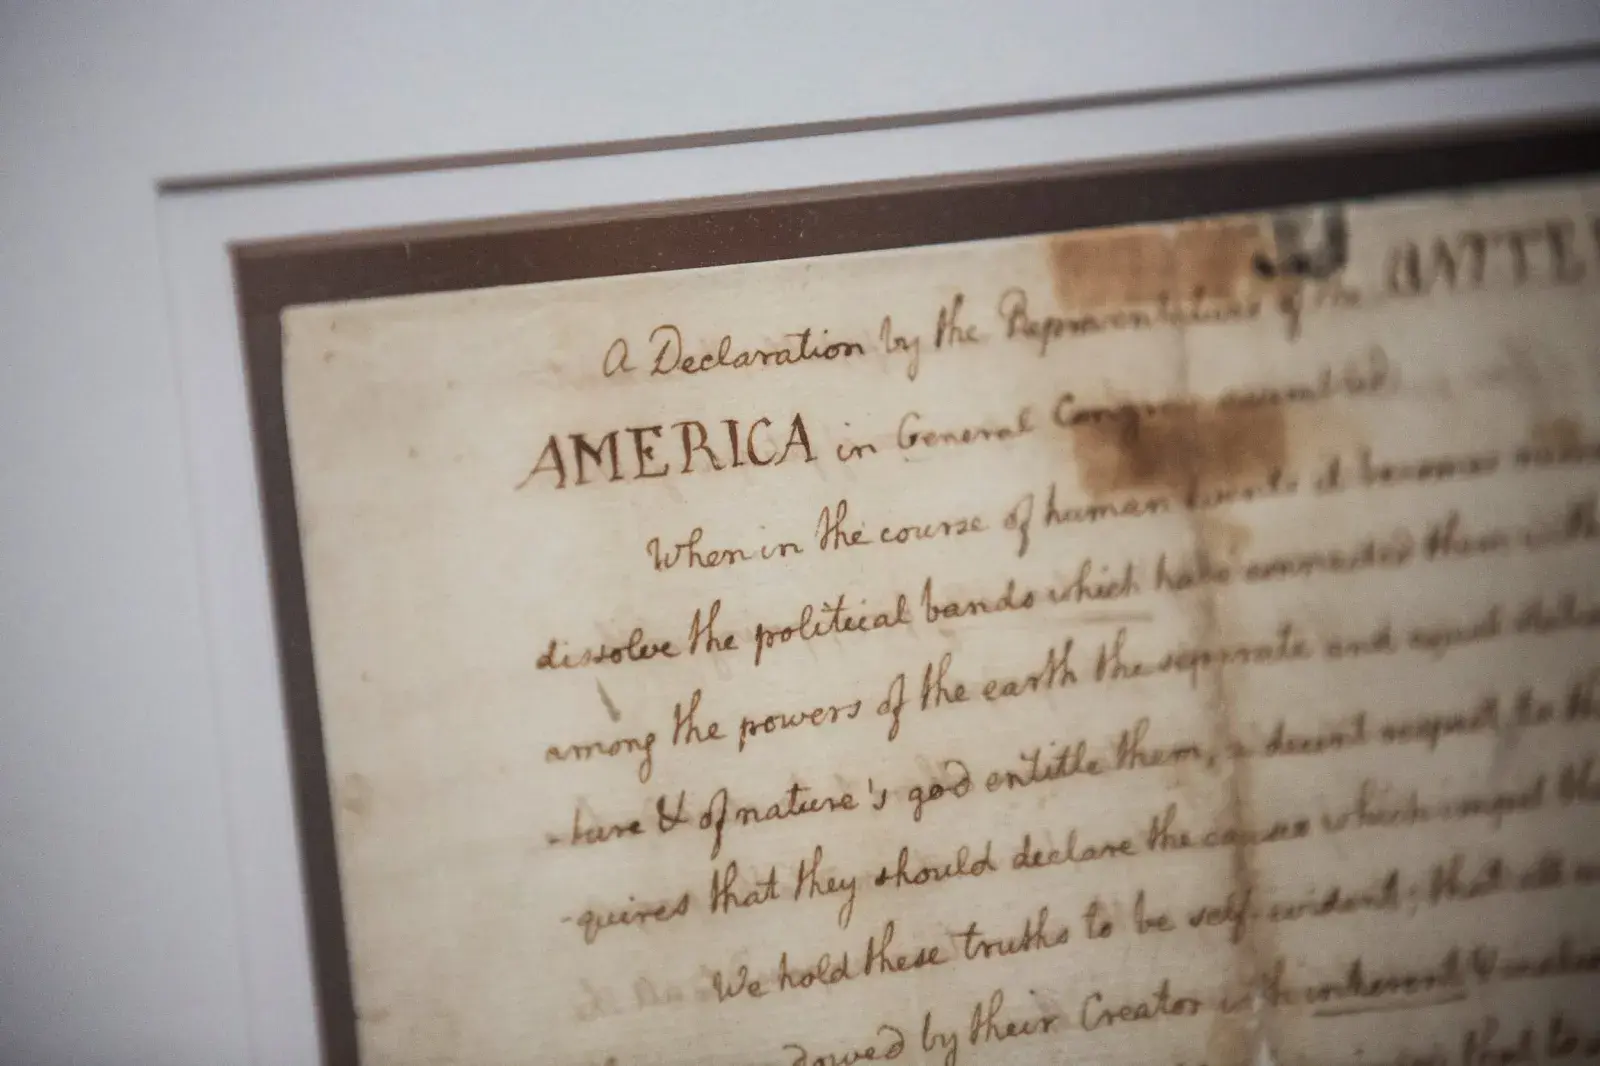 A Declaration by the Representatives of the UNITE
AMERICA in General Congress assembled
When in the course of human events it becomes
dissolve the political bands which have connected them with
among the powers of the earth the separate and equal
-ture & of nature's god entitle them, a decent respect to the
-quires that they should declare the causes which impel the
We hold these truths to be self-evident; that all
dowed by their Creator with inherent &
that to